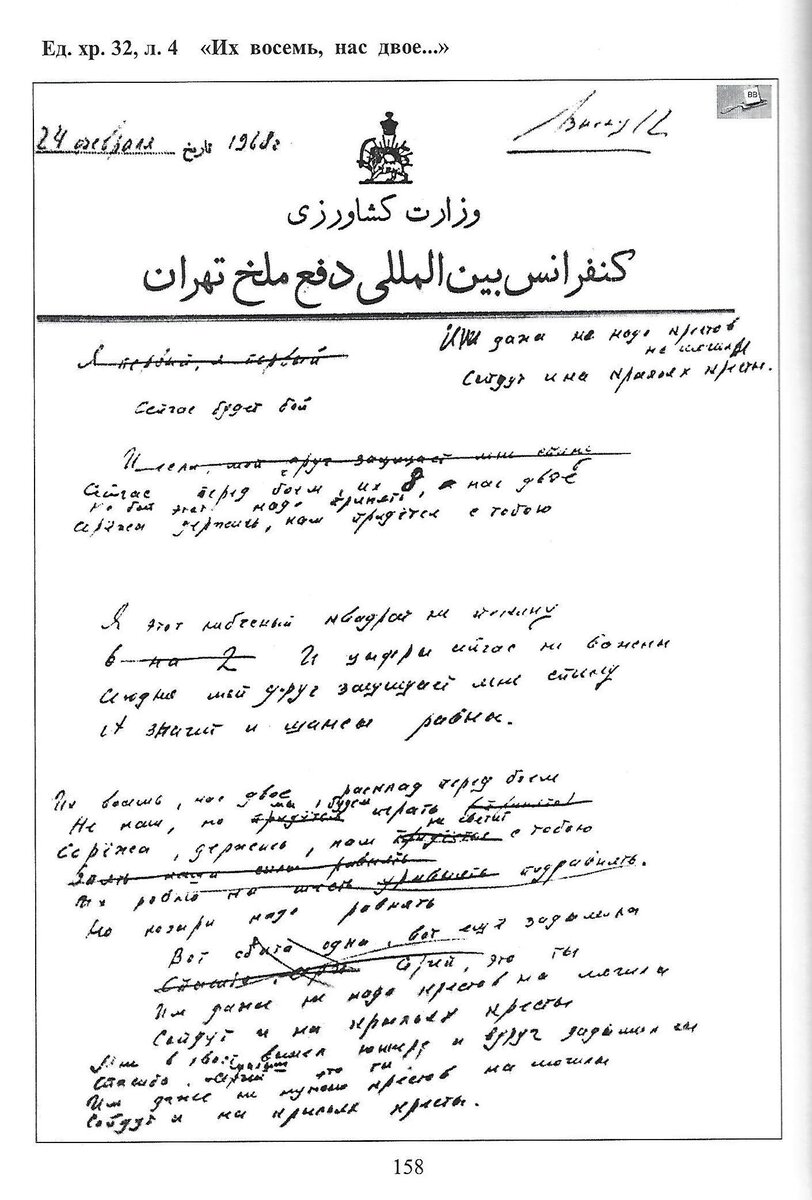 Ед. хр. 32, л. 4 «Их восемь, нас двое...»
BB
24 февраля تاریخ 1968г
وزارت کشاورزی
کنفرانس بین المللی دفع ملخ تهران
Им даже не надо крестов
на могилы
Сойдут и на крыльях кресты.
Я первый, я первый
Сейчас будет бой
И если мой друг защищает мне спину
Сейчас перед боем, их 8, нас двое
Но бой этот надо принять,
Серёжа держись, нам придётся с тобою
Я этот небесный квадрат не покину
6 на 2 И цифры сейчас не важны
Сегодня мой друг защищает мне спину
А значит и шансы равны.
Их восемь, нас двое расклад перед боем
Не наш, но мы будем играть
Серёжа, держись, нам не светит с тобою
Их ровно на шесть уравнять подравнять.
Но козыри надо равнять
Вот сбита одна, вот ещё задымила
Спасибо, Сергей, это ты
Им даже не надо крестов на могилы
Сойдут и на крыльях кресты
Мне в хвост вышел юнкерс и вдруг задымил он
Спасибо, Сергей это ты
Им даже не нужно крестов на могилы
Сойдут и на крыльях кресты.
158